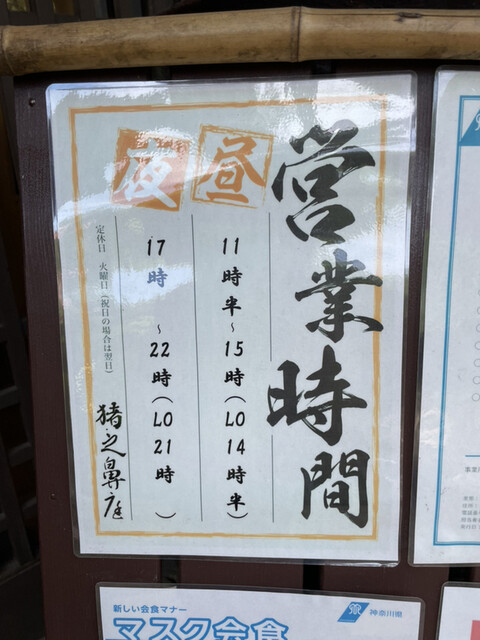 営業時間
昼
11時半～15時(LO14時半)
夜
17時～22時(LO21時 )
定休日 火曜日(祝日の場合は翌日)
猪之鼻庭
新しい会食マナー
神奈川県
マスク会食